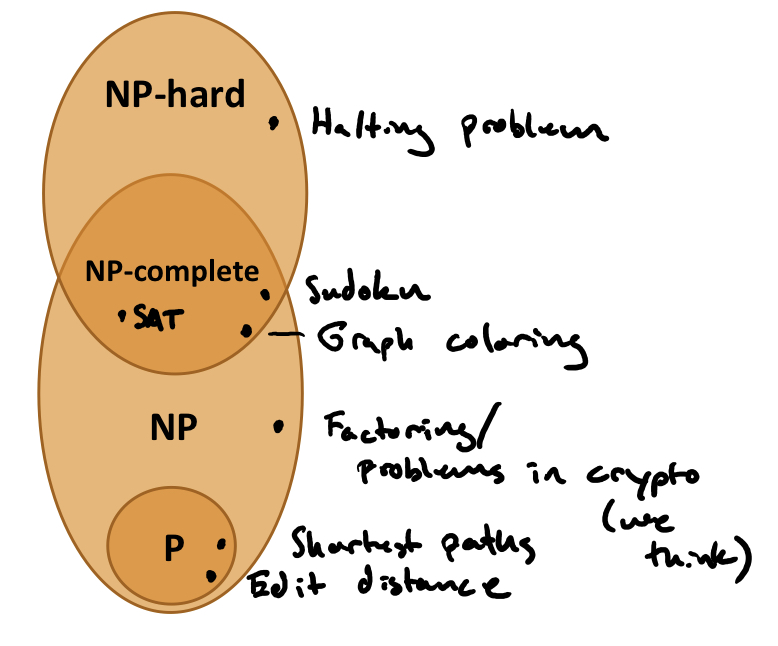 NP-hard
Halting problem
NP-complete
Sudoku
SAT
Graph coloring
NP
Factoring/
problems in crypto
(we
think)
P
Shortest paths
Edit distance